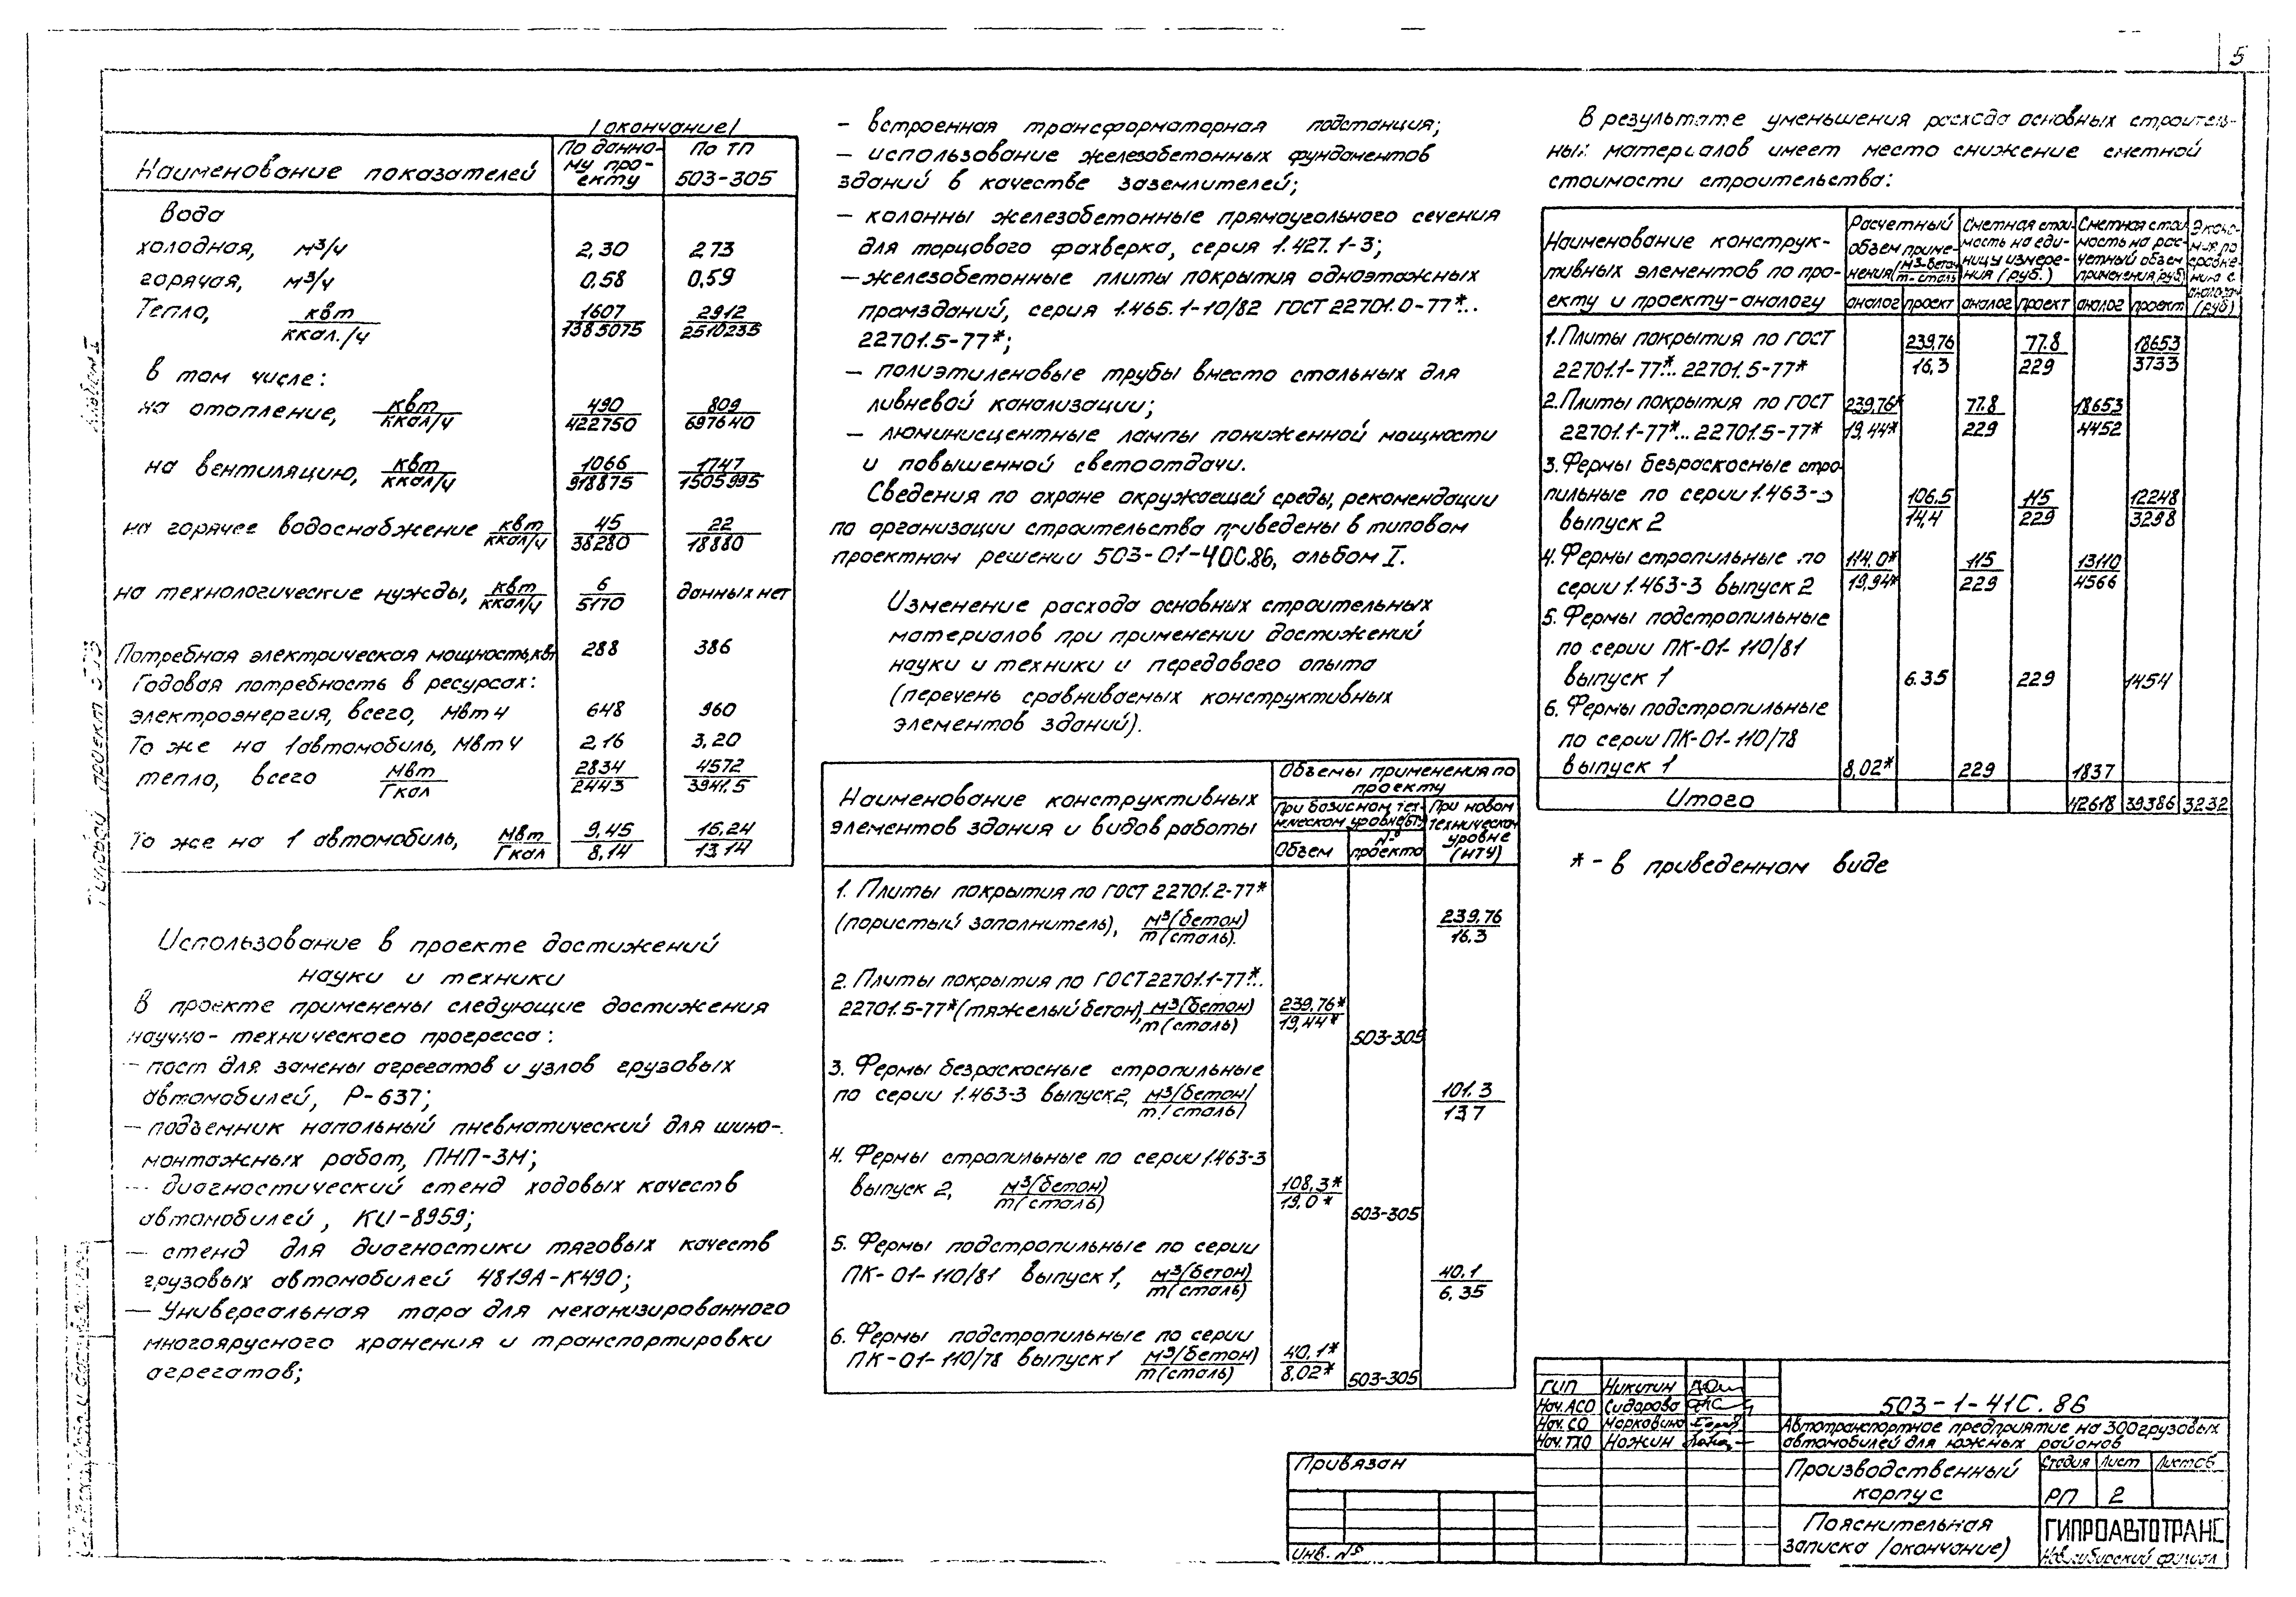 5
/окончание/
Наименование показателей
По данно-
му про-
екту
По ТП
503-305
Вода
холодная, м³/ч 2,30 2,73
горячая, м³/ч 0,58 0,59
Тепло, квт/ккал./ч 1607/1385075 2912/2510235
в том числе:
на отопление, квт/ккал/ч 490/422750 809/697640
на вентиляцию, квт/ккал/ч 1066/918875 1747/1505995
на горячее водоснабжение квт/ккал/ч 45/38280 22/18880
на технологические нужды, квт/ккал/ч 6/5170 данных нет
Потребная электрическая мощность, квт 288 386
Годовая потребность в ресурсах:
электроэнергия, всего, Мвт ч 648 960
То же на 1 автомобиль, Мвт ч 2,16 3,20
тепло, всего Мвт/Гкал 2834/2443 4572/3941.5
То же на 1 автомобиль, Мвт/Гкал 9,45/8,14 15,24/13,14
Использование в проекте достижений
науки и техники
В проекте применены следующие достижения
научно-технического прогресса:
— пост для замены агрегатов и узлов грузовых
автомобилей, Р-637;
— подъемник напольный пневматический для шино-
монтажных работ, ПНП-3М;
— диагностический стенд ходовых качеств
автомобилей, КИ-8959;
— стенд для диагностики тяговых качеств
грузовых автомобилей 4819А-К490;
— Универсальная тара для механизированного
многоярусного хранения и транспортировки
агрегатов;
— встроенная трансформаторная подстанция;
— использование железобетонных фундаментов
зданий в качестве заземлителей;
— колонны железобетонные прямоугольного сечения
для торцового фахверка, серия 1.427.1-3;
— железобетонные плиты покрытия одноэтажных
промзданий, серия 1.465.1-10/82 ГОСТ 22701.0-77*...
22701.5-77*;
— полиэтиленовые трубы вместо стальных для
ливневой канализации;
— люминисцентные лампы пониженной мощности
и повышенной светоотдачи.
Сведения по охране окружаещей среды, рекомендации
по организации строительства приведены в типовом
проектном решении 503-01-40С.86, альбом I.
Изменение расхода основных строительных
материалов при применении достижений
науки и техники и передового опыта
(перечень сравниваемых конструктивных
элементов зданий).
Наименование конструктивных
элементов здания и видов работы
Объемы применения по
проекту
При базисном тех-
ническом уровне(БТУ)
Объем
№
проекта
При новом
техническом
уровне
(НТУ)
1. Плиты покрытия по ГОСТ 22701.2-77*
(пористый заполнитель), м³(бетон)/т(сталь). 239,76/16.3
2. Плиты покрытия по ГОСТ 22701.1-77*...
22701.5-77* (тяжелый бетон), м³(бетон)/т(сталь) 239,76*/19,44* 503-305
3. Фермы безраскосные стропильные
по серии 1.463-3 выпуск 2, м³(бетон)/т(сталь) 101.3/13,7
4. Фермы стропильные по серии 1.463-3
выпуск 2, м³(бетон)/т(сталь) 108,3*/19,0* 503-305
5. Фермы подстропильные по серии
ПК-01-110/81 выпуск 1, м³(бетон)/т(сталь) 40.1/6,35
6. Фермы подстропильные по серии
ПК-01-110/78 выпуск 1 м³(бетон)/т(сталь) 40.1*/8,02* 503-305
В результате уменьшения расхода основных строитель-
ных материалов имеет место снижение сметной
стоимости строительства:
Наименование конструк-
тивных элементов по про-
екту и проекту-аналогу
Расчетный
объем приме-
нения (м3-бетон/т-сталь)
Сметная стои-
мость на еди-
ницы измере-
ния (руб.)
Сметная стои-
мость на рас-
четный объем
применения, (руб)
Эконо-
мия по
сравне-
нию с
аналогом
(руб)
аналог проект аналог проект аналог проект
1. Плиты покрытия по ГОСТ
22701.1-77*... 22701.5-77* 239,76/16,3 77.8/229 18653/3733
2. Плиты покрытия по ГОСТ
22701.1-77*... 22701.5-77* 239,76*/19,44* 77.8/229 18653/4452
3. Фермы безраскосные стро-
пильные по серии 1.463-3
выпуск 2 106.5/14,4 115/229 12248/3298
4. Фермы стропильные по
серии 1.463-3 выпуск 2 114,0*/19,94* 115/229 13110/4566
5. Фермы подстропильные
по серии ПК-01-110/81
выпуск 1 6.35 229 1454
6. Фермы подстропильные
по серии ПК-01-110/78
выпуск 1 8,02* 229 1837
Итого 42618 39386 3232
* - в приведенном виде
Альбом I
Типовой проект
Привязан
Инв. №
ГИП Никитин
Нач. АСО Сидорова
Нач. СО Морковина
Нач. ТХО Ножин
503-1-41С.86
Автотранспортное предприятие на 300 грузовых
автомобилей для южных районов
Производственный
корпус
Стадия Лист Листов
РП 2
Пояснительная
записка /окончание)
ГИПРОАВТОТРАНС
Новосибирский филиал